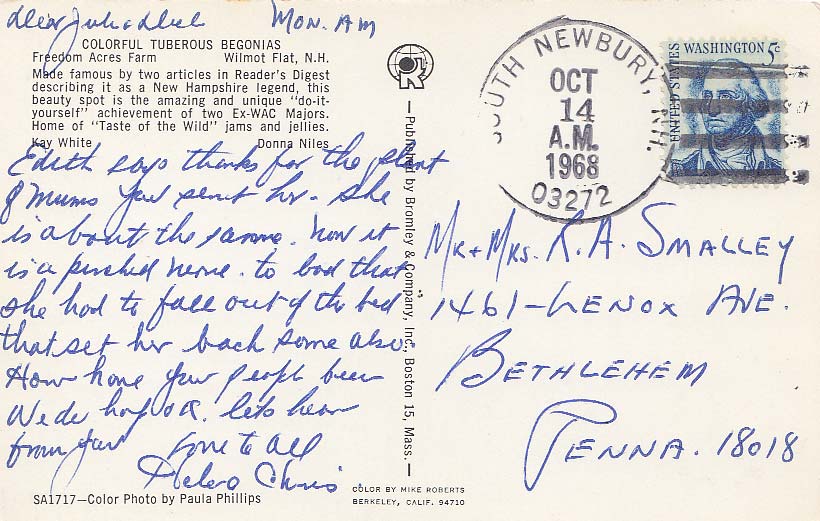 Mon. AM
COLORFUL TUBEROUS BEGONIAS
Freedom Acres Farm Wilmot Flat, N.H.
Made famous by two articles in Reader's Digest
describing it as a New Hampshire legend, this
beauty spot is the amazing and unique "do-it-
yourself" achievement of two Ex-WAC Majors.
Home of "Taste of the Wild" jams and jellies.
Kay White Donna Niles
Edith says thanks for the plant
of mums you sent her. She
is about the same. Now it
is a pinched nerve. to bad that
she had to fall out of the bed
that set her back some also.
How have your people been
We do hope OK. lets hear
from you love to all
Chris
SA1717—Color Photo by Paula Phillips
R
— Published by Bromley & Company, Inc., Boston 15, Mass. —
COLOR BY MIKE ROBERTS
BERKELEY, CALIF. 94710
SOUTH NEWBURY, N.H.
OCT
14
A.M.
1968
03272
UNITED STATES
WASHINGTON 5c
Mr + Mrs. R. A. Smalley
1461 - Lenox Ave.
Bethlehem
Penna. 18018